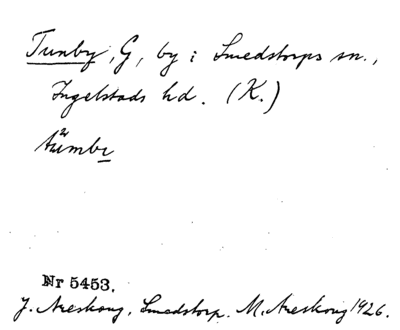 Tunby, G, by i Smedstorps sn.,
Ingelstads hd. (K.)
tumbı
Nr 5453.
J. Areskoug, Smedstorp. M. Areskoug 1926.